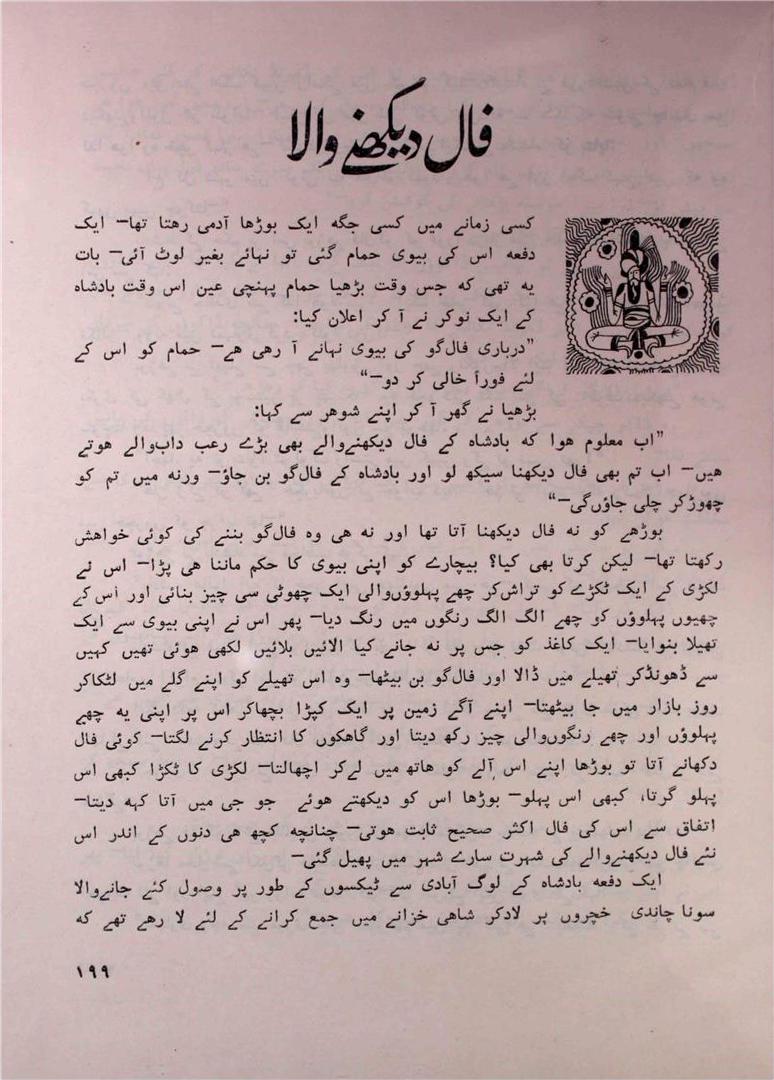 فال دیکھنے والا
کسی زمانے میں کسی جگہ ایک بوڑھا آدمی رھتا تھا— ایک
دفعہ اس کی بیوی حمام گئی تو نہائے بغیر لوٹ آئی— بات
یہ تھی کہ جس وقت بڑھیا حمام پہنچی عین اس وقت بادشاہ
کے ایک نوکر نے آ کر اعلان کیا:
”درباری فال‌گو کی بیوی نہانے آ رھی ھے— حمام کو اس کے
لئے فوراً خالی کر دو—“
بڑھیا نے گھر آ کر اپنے شوھر سے کہا:
”اب معلوم ھوا کہ بادشاہ کے فال دیکھنے‌والے بھی بڑے رعب داب‌والے ھوتے
ھیں— اب تم بھی فال دیکھنا سیکھ لو اور بادشاہ کے فال‌گو بن جاؤ— ورنہ میں تم کو
چھوڑکر چلی جاؤں‌گی—“
بوڑھے کو نہ فال دیکھنا آتا تھا اور نہ ھی وہ فال‌گو بننے کی کوئی خواھش
رکھتا تھا— لیکن کرتا بھی کیا؟ بیچارے کو اپنی بیوی کا حکم ماننا ھی پڑا— اس نے
لکڑی کے ایک ٹکڑے کو تراش‌کر چھے پہلوؤں‌والی ایک چھوٹی سی چیز بنائی اور اس کے
چھیوں پہلوؤں کو چھے الگ الگ رنگوں میں رنگ دیا— پھر اس نے اپنی بیوی سے ایک
تھیلا بنوایا— ایک کاغذ کو جس پر نہ جانے کیا الائیں بلائیں لکھی ھوئی تھیں کہیں
سے ڈھونڈکر تھیلے میں ڈالا اور فال‌گو بن بیٹھا— وہ اس تھیلے کو اپنے گلے میں لٹکاکر
روز بازار میں جا بیٹھتا— اپنے آگے زمین پر ایک کپڑا بچھاکر اس پر اپنی یہ چھے
پہلوؤں اور چھے رنگوں‌والی چیز رکھ دیتا اور گاھکوں کا انتظار کرنے لگتا— کوئی فال
دکھانے آتا تو بوڑھا اپنے اس آلے کو ھاتھ میں لے‌کر اچھالتا— لکڑی کا ٹکڑا کبھی اس
پہلو گرتا، کبھی اس پہلو— بوڑھا اس کو دیکھتے ھوئے جو جی میں آتا کہہ دیتا—
اتفاق سے اس کی فال اکثر صحیح ثابت ھوتی— چنانچہ کچھ ھی دنوں کے اندر اس
نئے فال دیکھنے‌والے کی شہرت سارے شہر میں پھیل گئی—
ایک دفعہ بادشاہ کے لوگ آبادی سے ٹیکسوں کے طور پر وصول کئے جانے‌والا
سونا چاندی خچروں پر لادکر شاھی خزانے میں جمع کرانے کے لئے لا رھے تھے کہ
۱۹۹